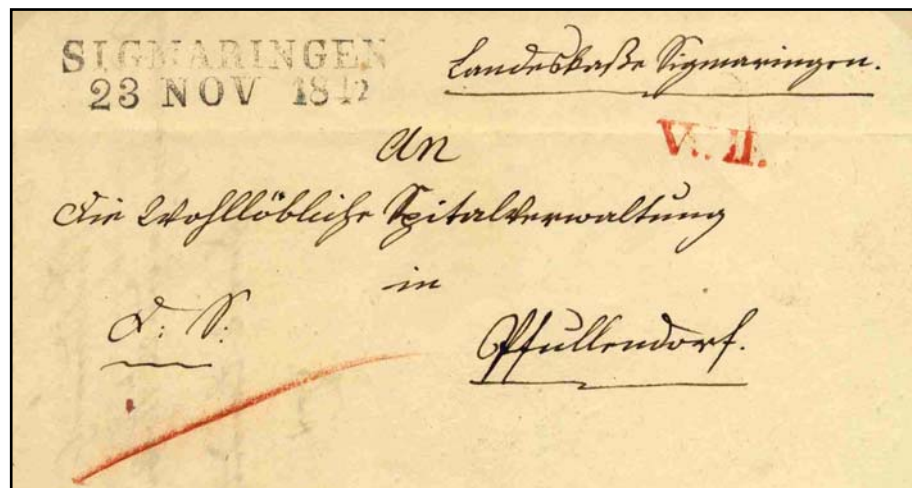 SIGMARINGEN
23 NOV 1842
Landeskaße Sigmaringen.
V. II.
An
die Wohllöbliche Spitalverwaltung
in
D: S:
Pfullendorf.